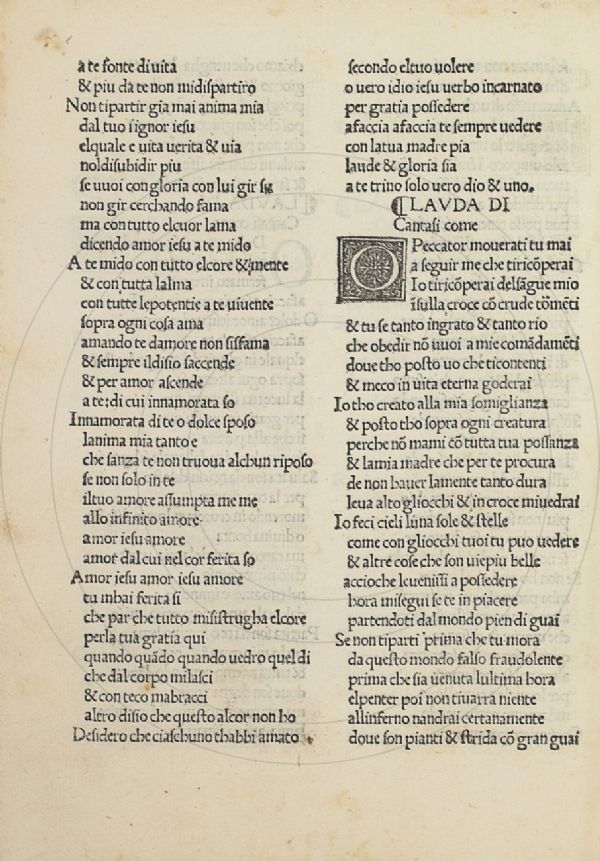 a te fonte diuita
& piu da te non midispartiro
Non tipartir gia mai anima mia
dal tuo ſignor iesu
elquale e uita uerita & uia
noldisubidir piu
se uuoi con gloria con lui gir su
non gir cerchando fama
ma con tutto elcuor lama
dicendo amor iesu a te mido
A te mido con tutto elcore & mente
& con tutta lalma
con tutte lepotentie a te uiuente
sopra ogni cosa ama
amando te damore non sisfama
& sempre ildisio saccende
& per amor ascende
a te: di cui innamorata so
Innamorata di te o dolce sposo
lanima mia tanto e
che sanza te non truoua alchun riposo
se non solo in te
iltuo amore assumpta me me
allo infinito amore
amor iesu amore
amor dal cui nel cor ferita so
Amor iesu amor iesu amore
tu mhai ferita si
che par che tutto misistrugha elcore
perla tua gratia qui
quando quãdo quando uedro quel di
che dal corpo milasci
& con teco mabracci
altro disio che questo alcor non ho
Desidero che ciaschuno thabbi amato
secondo eltuo uolere
o uero idio iesu uerbo incarnato
per gratia possedere
afaccia afaccia te sempre uedere
con latua madre pia
laude & gloria sia
a te trino solo uero dio & uno.
¶ LAVDA DI
Cantasi come
O Peccator mouerati tu mai
a seguir me che tiricõperai
Io tiricõperai delsãgue mio
ĩsulla croce cõ crude tõmẽti
& tu se tanto ingrato & tanto rio
che obedir nõ uuoi a mie comãdamẽti
doue tho posto uo che ticontenti
& meco in uita eterna goderai
Io tho creato alla mia somiglianza
& posto tho sopra ogni creatura
perche nõ mami cõ tutta tua possanza
& lamia madre che per te procura
de non hauer lamente tanto dura
leua alto gliocchi & in croce miuedrai
Io feci cieli luna sole & stelle
come con gliocchi tuoi tu puo uedere
& altre cose che son uiepiu belle
accioche leuenissi a possedere
hora misegui se te in piacere
partendoti dal mondo pien di guai
Se non tiparti prima che tu mora
da questo mondo falso fraudolente
prima che sia uenuta lultima hora
elpenter poi non tiuarra niente
allinferno nandrai certanamente
doue son pianti & strida cõ gran guai